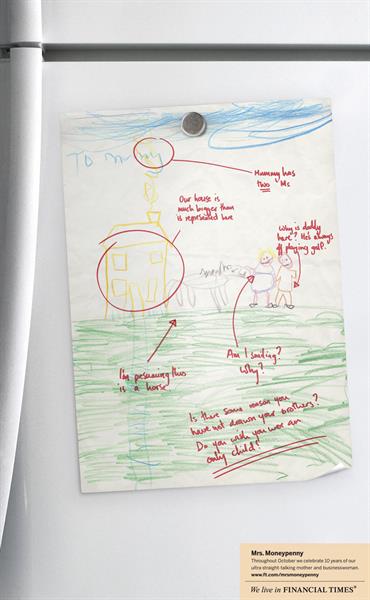 To mumy
Mummy has
two Ms
Our house is
much bigger than
is represented here
Why is daddy
here? He's always
off playing golf.
I'm presuming this
is a horse
Am I smiling?
Why?
Is there some reason you
have not drawn your brothers?
Do you wish you were an
only child?
Mrs. Moneypenny
Throughout October we celebrate 10 years of our
ultra straight-talking mother and businesswoman.
www.ft.com/mrsmoneypenny
We live in FINANCIAL TIMES®